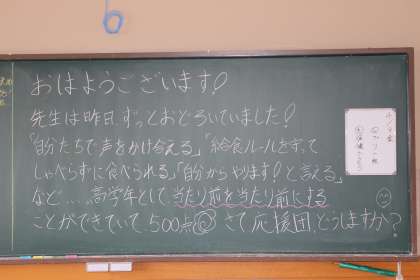 おはようございます!
先生は昨日、ずっとおどろいていました!
「自分たちで声をかけ合える」「給食ルールを守って
しゃべらずに食べられる」「自分からやります!と言える」
など…。高学年として、当たり前を当たり前にする
ことができていて、500点 さて応援団、どうしますか?